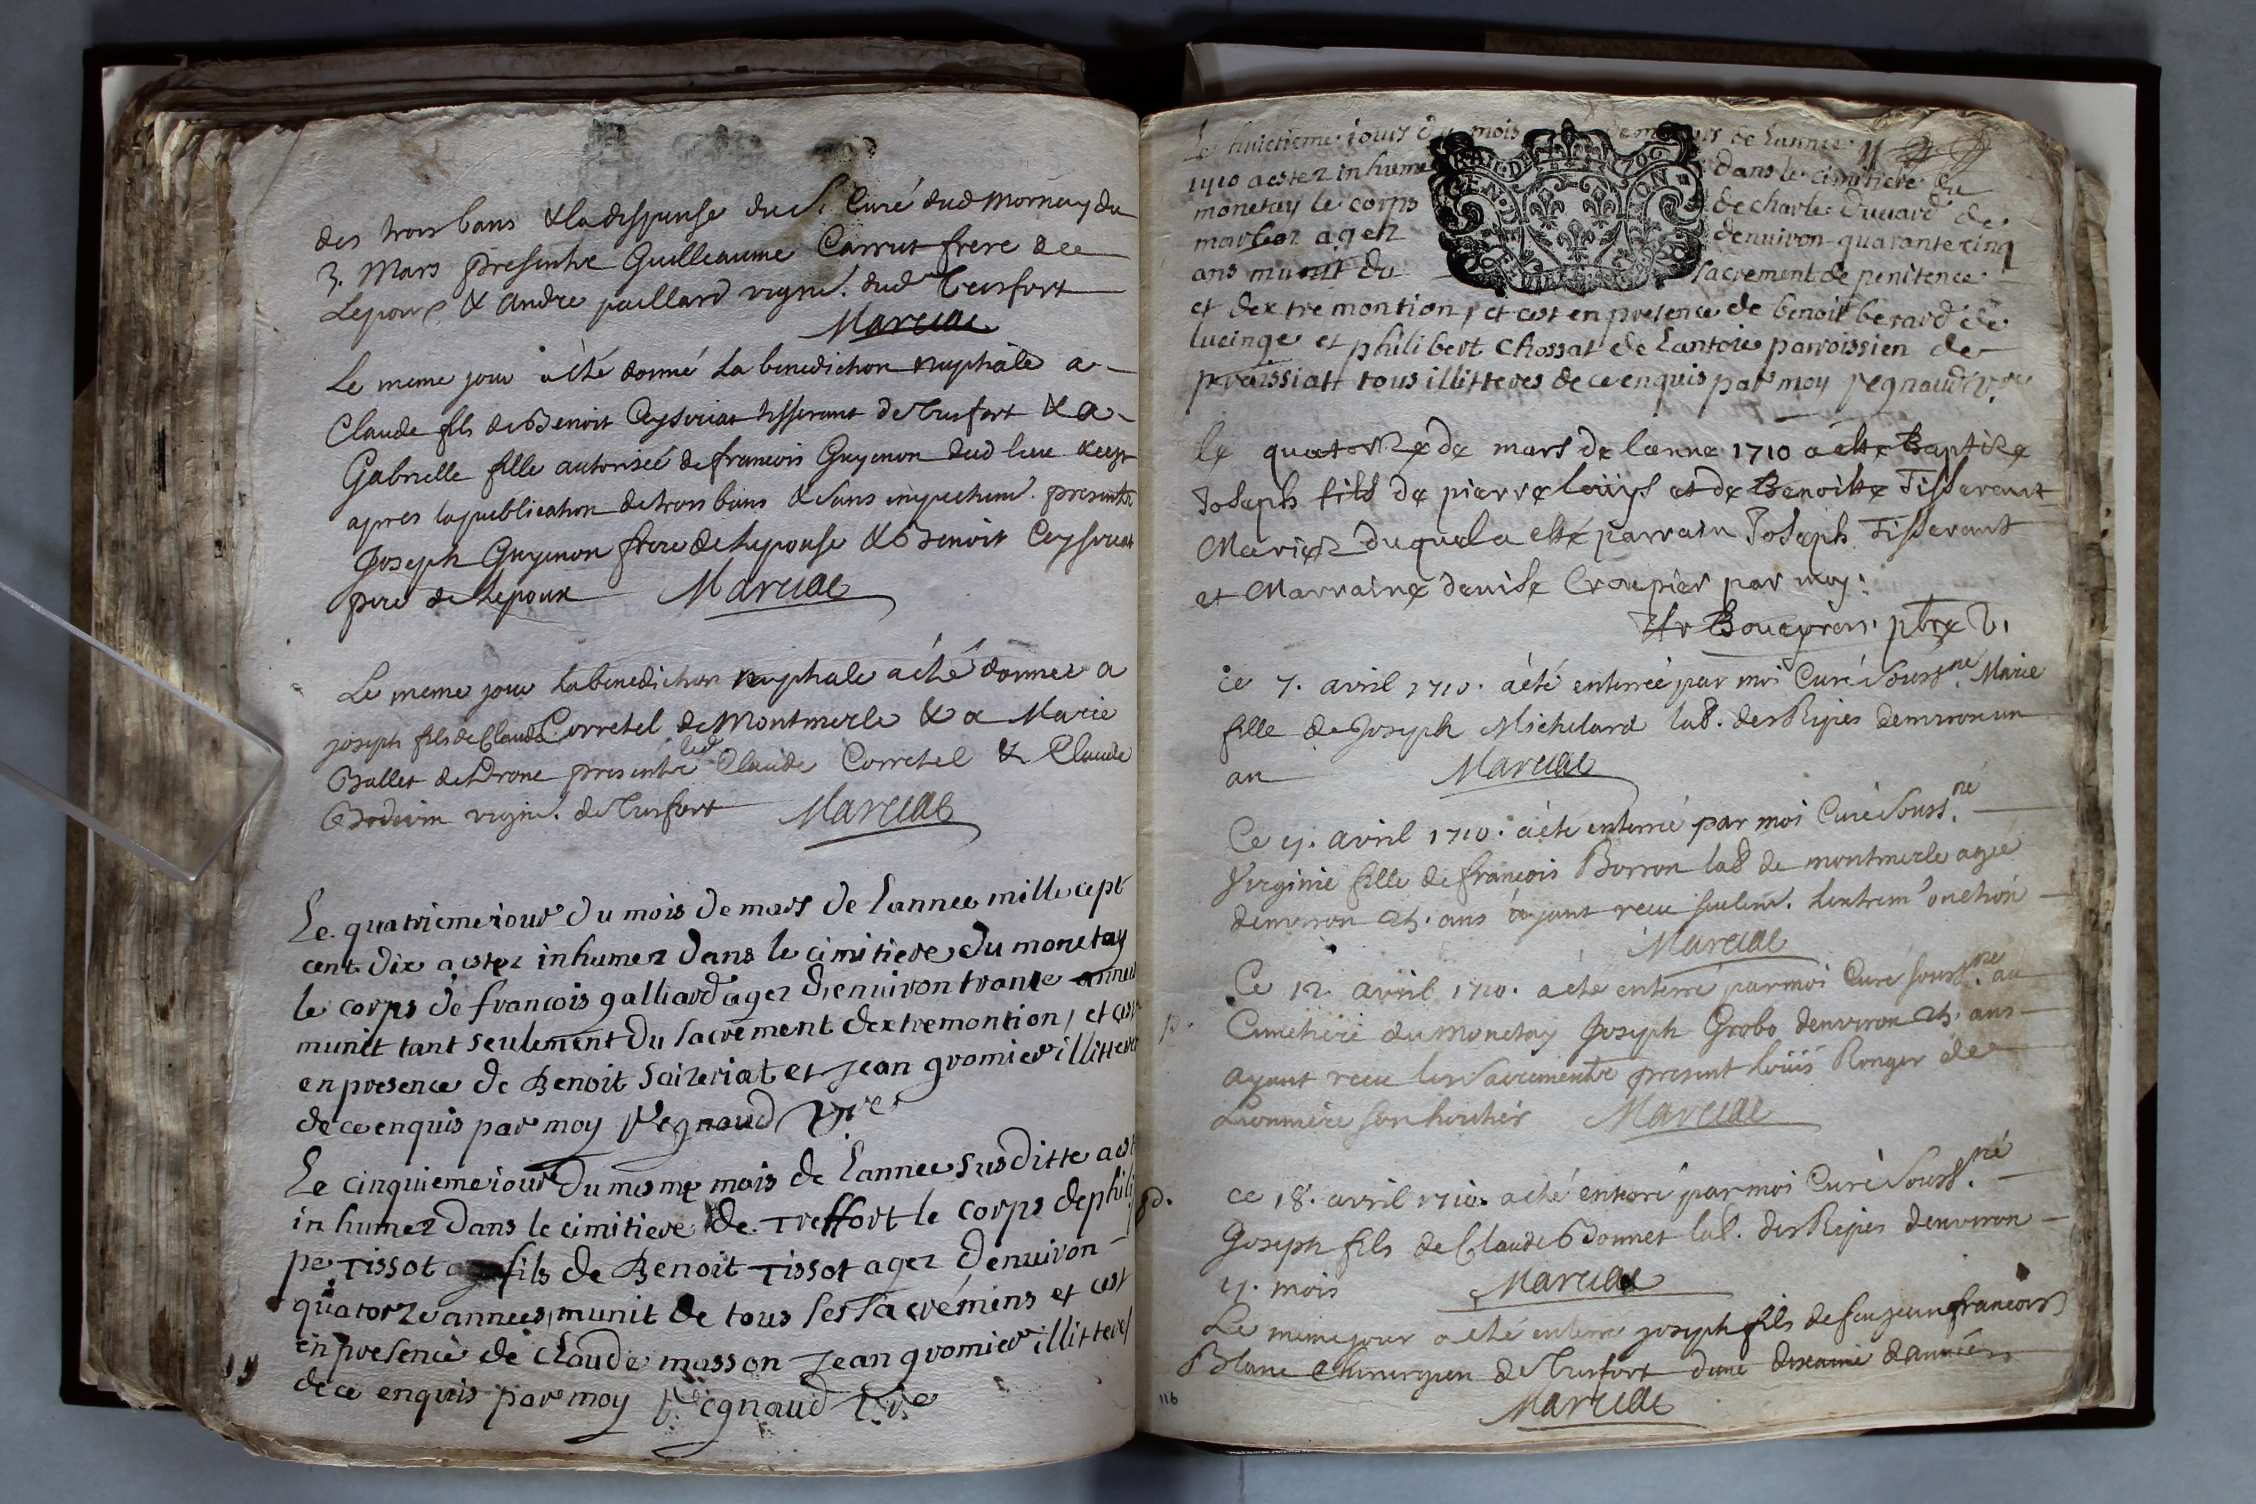 des trois bans & la dispense du Sr Curé dud mornay du
3. Mars presents Guilleaume Carrut frere de
Lepoux & andre paillard vigne. dud Treffort
Marcial
Le meme jour a été donné La benediction nuptiale a
Claude fils de Benoit Ceyseriat tisserant de Treffort & a
Gabrielle fille autorisée de francois Guyenon dud lieu
apres la publication de trois bans & sans empechem. presents
Joseph Guyenon frere de Lepouse & Benoit Ceyseriat
pere de Lepoux Marcial
Le meme jour La benediction nuptiale a été donnée a
joseph fils de Claude Corretel de Montmerle & a Marie
Ballet de Drone presents led Claude Corretel & Claude
Bodevin vigne. de Treffort Marcial
Le quatrieme iour du mois de mars de Lannee mille cept
cent dix a estez inhumez dans le cimitiere du monetay
le corps de francois galliard agez denuiron trante annees
munit tant seulement du sacrement dextremontion, et cest
en presence de Benoit Saizeriat et Jean gromier illitteres
de ce enquis par moy Regnaud vre
Le cinquieme iour du mesme mois de Lannee susditte a est
inhumez dans le cimitiere de Treffort le corps de phili
pe Tissot fils de Benoit Tissot agez denuiron
quatorze annees, munit de tous ses sacrémens et cest
en presence de claude masson Jean gromier illitteres
de ce enquis par moy Regnaud vre
GEN. DE DIION
Le huictieme iour du mois de mars de Lannee
1710 a estez inhume dans le cimitiere du
monetay le corps de charle duuard de
marboz agez denuiron quarante cinq
ans munit du sacrement de penitence
et dextremontion, et cest en presence de benoit berard de
lucinge et philibert Chossat de Lantoie parroissien de
praissiat tous illitteres de ce enquis par moy regnaud v.re
le quatorze de mars de lanne 1710 a este Baptize
Joseph fils de pierre loüys et de Benoitte Tisserant
Mariez duquel a esté parrain Joseph Tisserant
et Marraine denise Croupier par moy:
ptre v.
ce 7. avril 1710. a été enterrée par moi Curé Soussné Marie
fille de Joseph Michelard lab. des Ripes denviron un
an Marcial
Ce 9. avril 1710. a été enterrée par moi Curé Soussné.
Virginie fille de francois Borron lab de montmerle agée
denviron 25. ans ayant receu seulem. Lextrem' onction
Marcial
Ce 12 avril 1710. a été enterré par moi Curé Soussné au
p. Cimetiere du Monetay Joseph Grobo denviron 25. ans
ayant receu les Sacrements present Loüis Ronger de
Lionniere son Marcial
p. ce 18. avril 1710. a été enterré par moi Curé Soussné.
Joseph fils de Claude Bonnet lab. des Ripes denviron
9. mois Marcial
Le meme jour a été enterré joseph fils de feu jean francois
Blanc chirurgien de Treffort dune dixaine dannées
116 Marcial